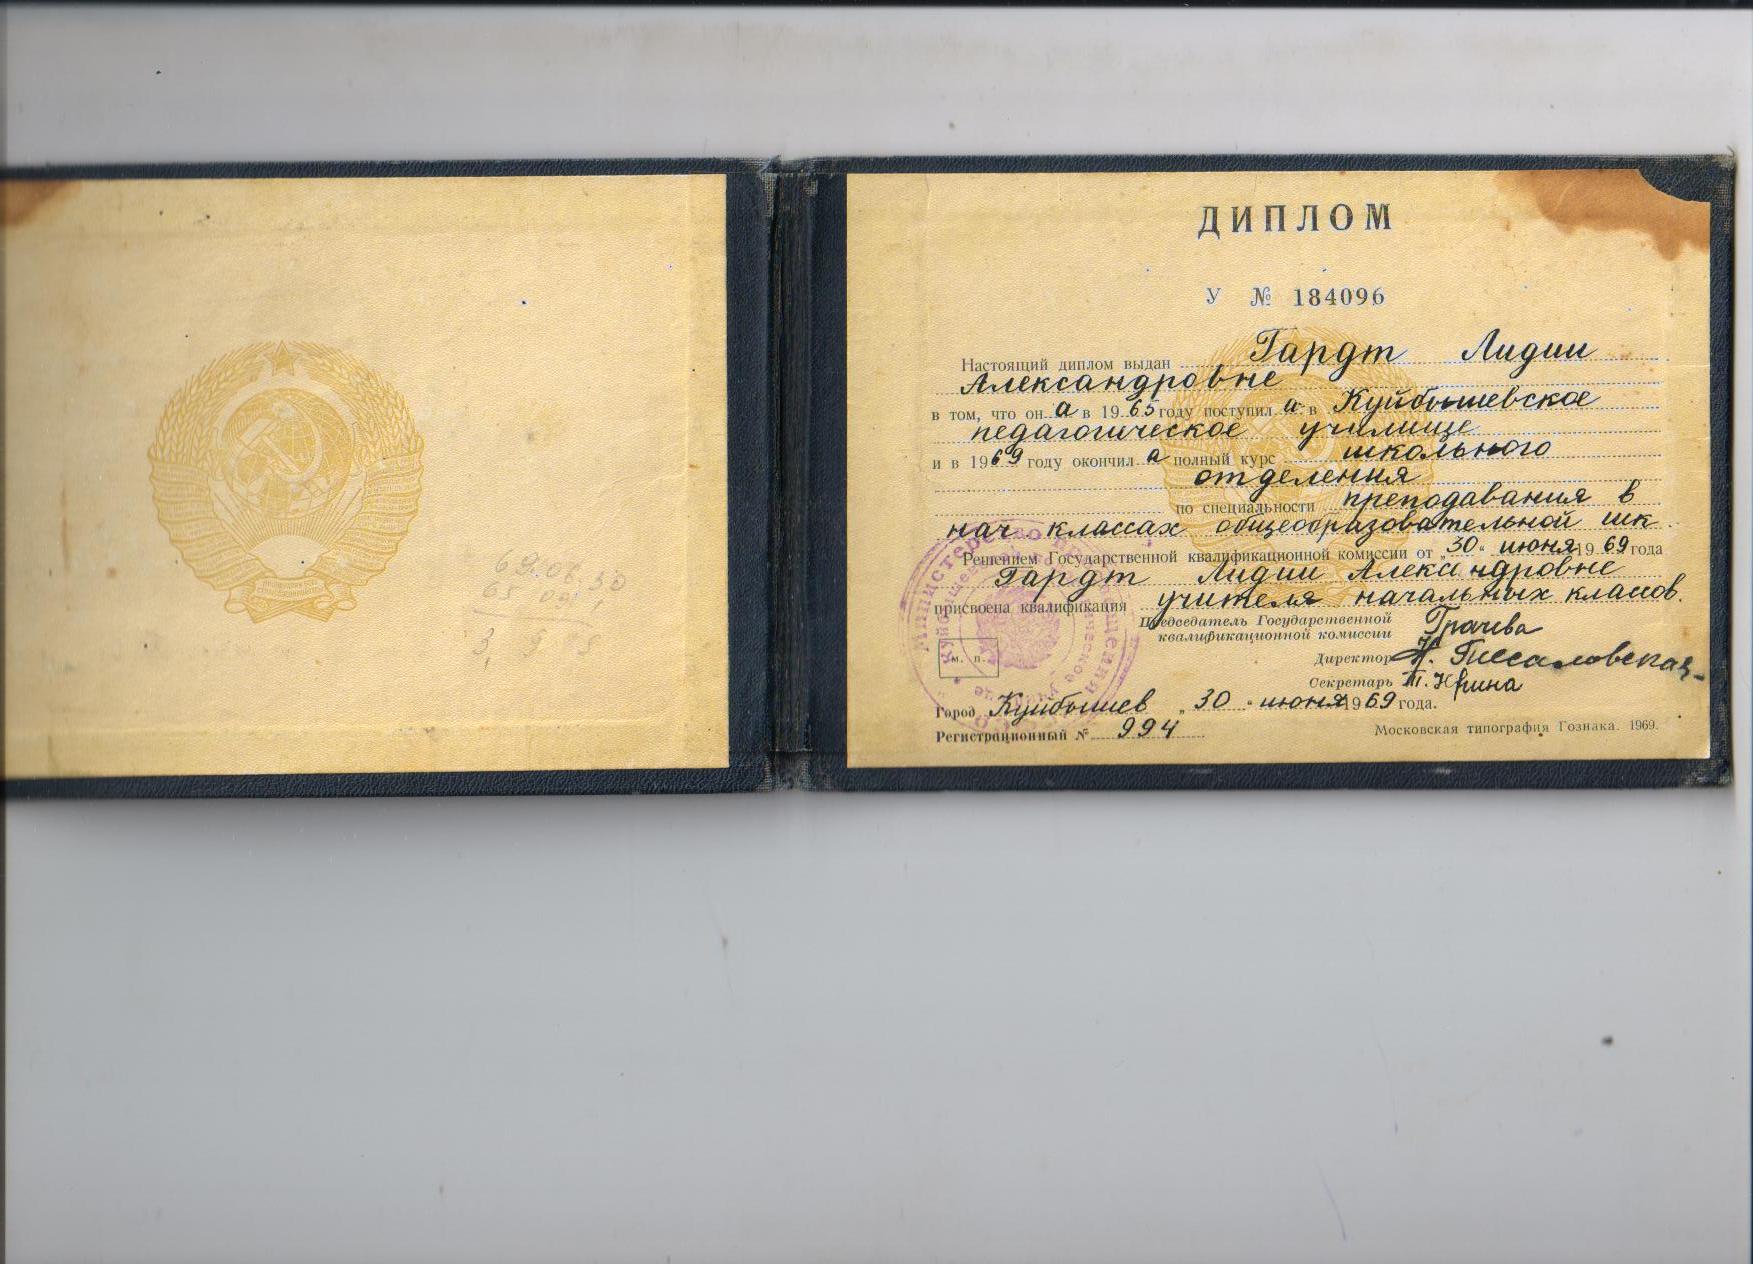 69.06.30
65 09 1
3, 9 29
ДИПЛОМ
У № 184096
Настоящий диплом выдан Гардт Лидии
Александровне
в том, что он а в 1965 году поступил а в Куйбышевское
педагогическое училище
и в 1969 году окончил а полный курс школьного
отделения
по специальности преподавания в
нач классах общеобразовательной шк
Решением Государственной квалификационной комиссии от „30“ июня 1969 года
Гардт Лидии Александровне
присвоена квалификация учителя начальных классов.
Председатель Государственной
квалификационной комиссии Грачева
Директор
Секретарь
м. п.
Город Куйбышев „30“ июня 1969 года.
Регистрационный № 994
Московская типография Гознака. 1969.